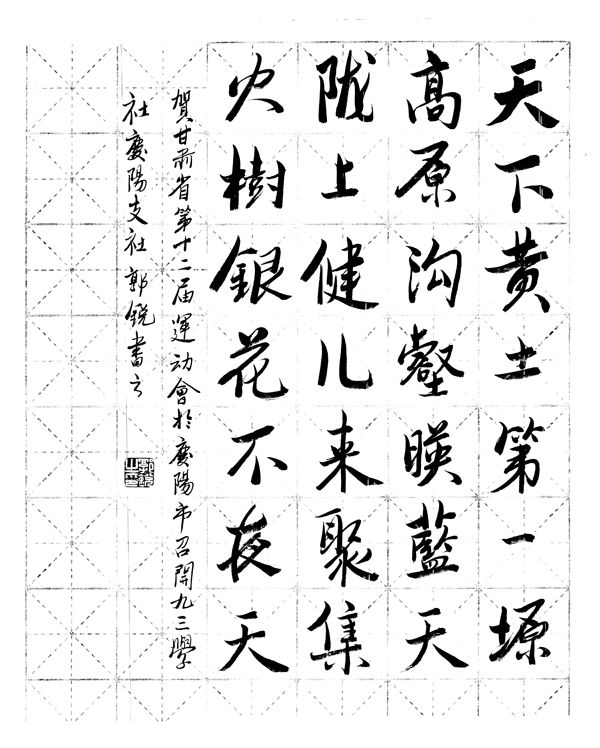 天下黄土第一塬
高原沟壑暎藍天
陇上健儿来聚集
火樹銀花不夜天
賀甘肃省第十二届運动會於慶陽市召開九三學
社慶陽支社郭锐書